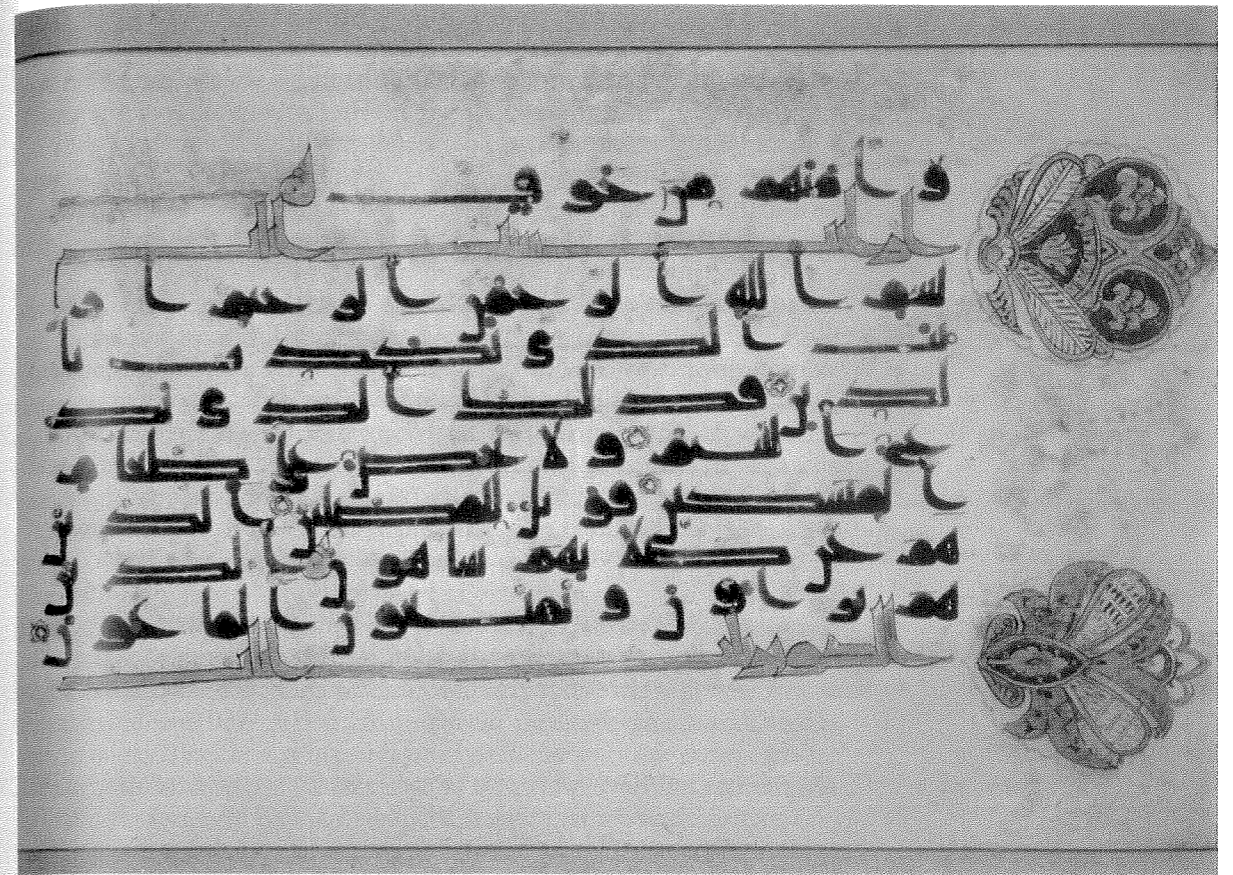 وامنهم من خوف
بسم الله الرحمن الرحيم ار
يت الذي يكذب با
لدين فذلك الذي يد
ع اليتيم ولا يحض على طعام
المسكين فويل للمصلين الذين
هم عن صلاتهم ساهون الذين
هم يراون ويمنعون الماعون